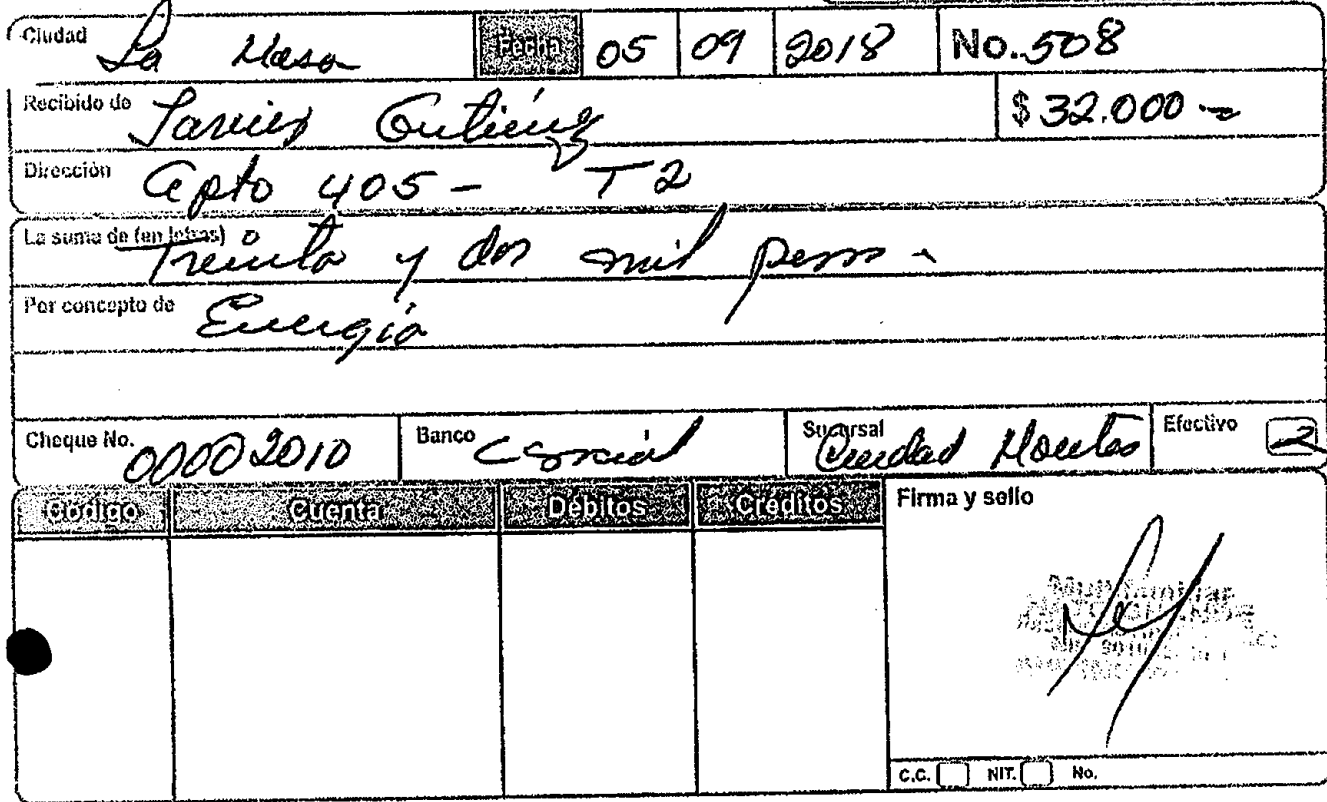 Ciudad La Mesa Fecha 05 09 2018 No. 508
Recibido de Javier Gutiérrez $ 32.000
Dirección Apto 405 - T2
La suma de (en letras) Treinta y dos mil pesos
Por concepto de Energía
Cheque No. 00002010 Banco C Social Sucursal Ciudad Montes Efectivo
Código Cuenta Débitos Créditos Firma y sello
Multifamiliar
C.C. NIT. No.